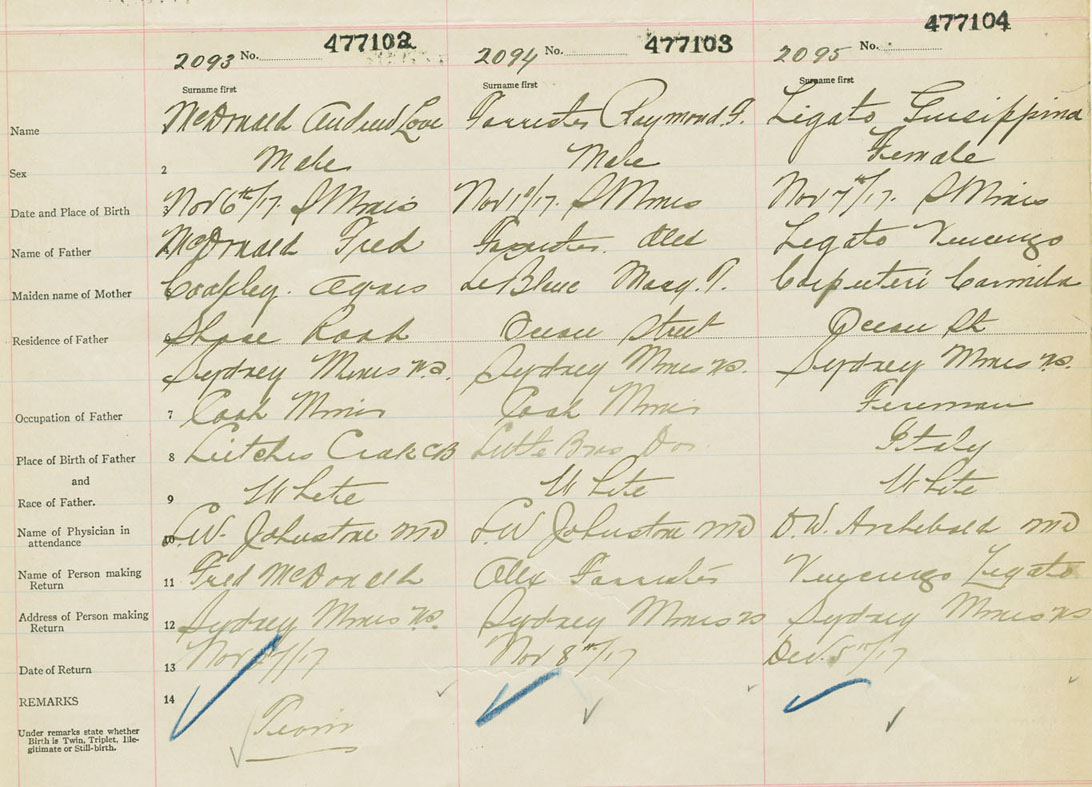 2093 No. 477102 2094 No. 477103 2095 No. 477104
Surname first Surname first Surname first
Name McDonald Andrew Love Forrester Raymond F. Ligato Guisippina
Sex 2 Male Male Female
Date and Place of Birth Nov 6th/17. S Mines Nov 1st/17. S Mines Nov 7th/17. S Mines
Name of Father McDonald Fred Forrester. Alex Legato Vincenzo
Maiden name of Mother Agnes LeBlue
Residence of Father Shore Road Ocean Street Ocean St
Sydney Mines N.S. Sydney Mines N.S. Sydney Mines N.S.
Occupation of Father 7 Coal Miner Coal Miner Fireman
Place of Birth of Father 8 CB Little Bras Dor Italy
and
Race of Father. 9 White White White
Name of Physician in
attendance 10 L.W. Johnstone MD L.W Johnstone MD D.W. Archibald MD
Name of Person making
Return 11 Fred McDonald Alex Forrester Vincenzo Legato
Address of Person making
Return 12 Sydney Mines N.S. Sydney Mines NS Sydney Mines NS
Date of Return 13 Nov /17 Nov 8th/17 Dec. 5th/17
REMARKS 14
Under remarks state whether
Birth is Twin, Triplet, Ille-
gitimate or Still-birth.